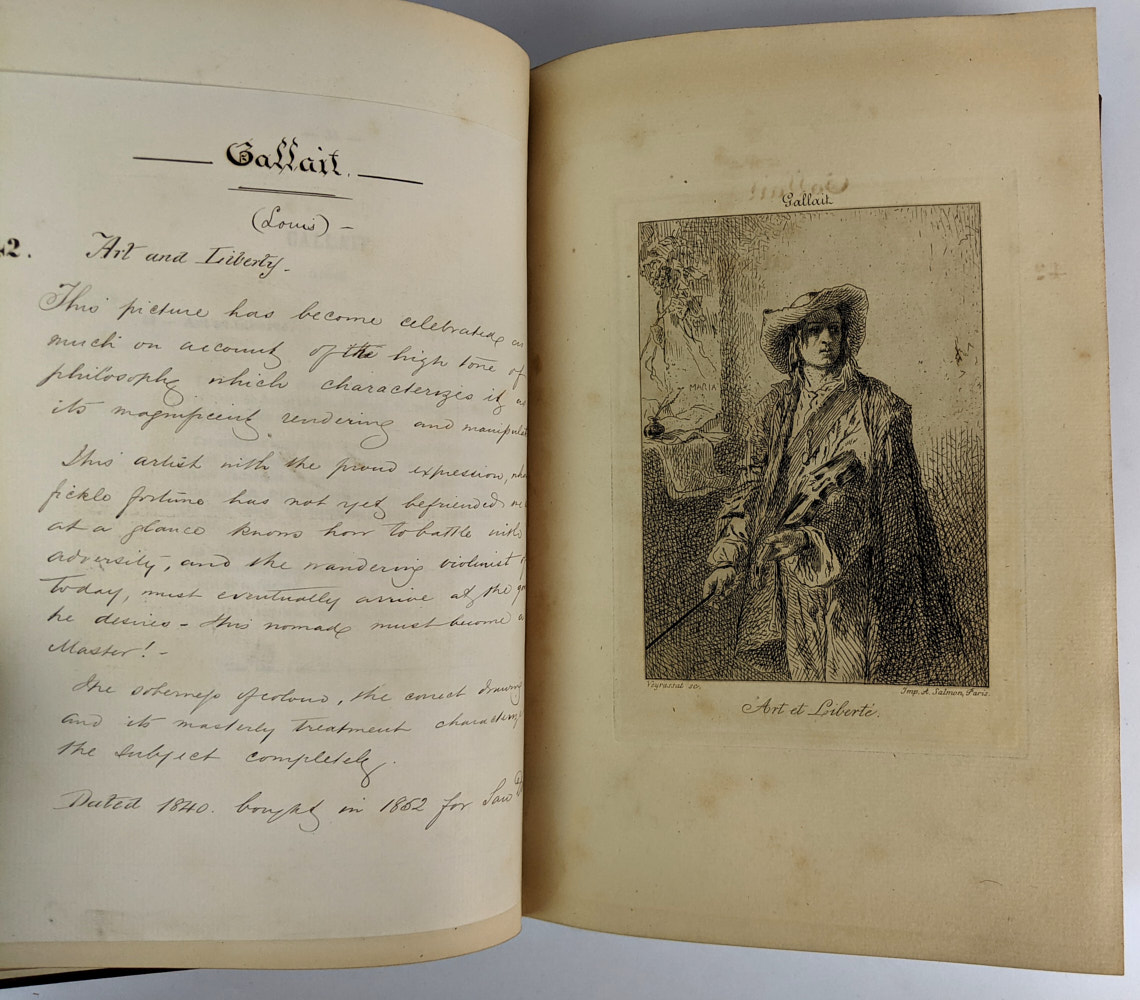 Gallait.
(Louis) -
42. Art and Liberty.
This picture has become celebrated as
much on account of the high tone of
philosophy which characterizes it as
its magnificent rendering and
This artist with the proud expression,
fickle fortune has not yet befriended,
at a glance knows how to battle with
adversity, and the wandering violinist
today, must eventually arrive at the
he desires - this nomade must become a
Master! -
The soberness of colour, the correct drawing
and its masterly treatment
the subject completely.
Dated 1840. bought in 1852 for
Gallait
MARIA
Veyrassat sc.
Imp. A. Salmon, Paris.
Art et Liberté.